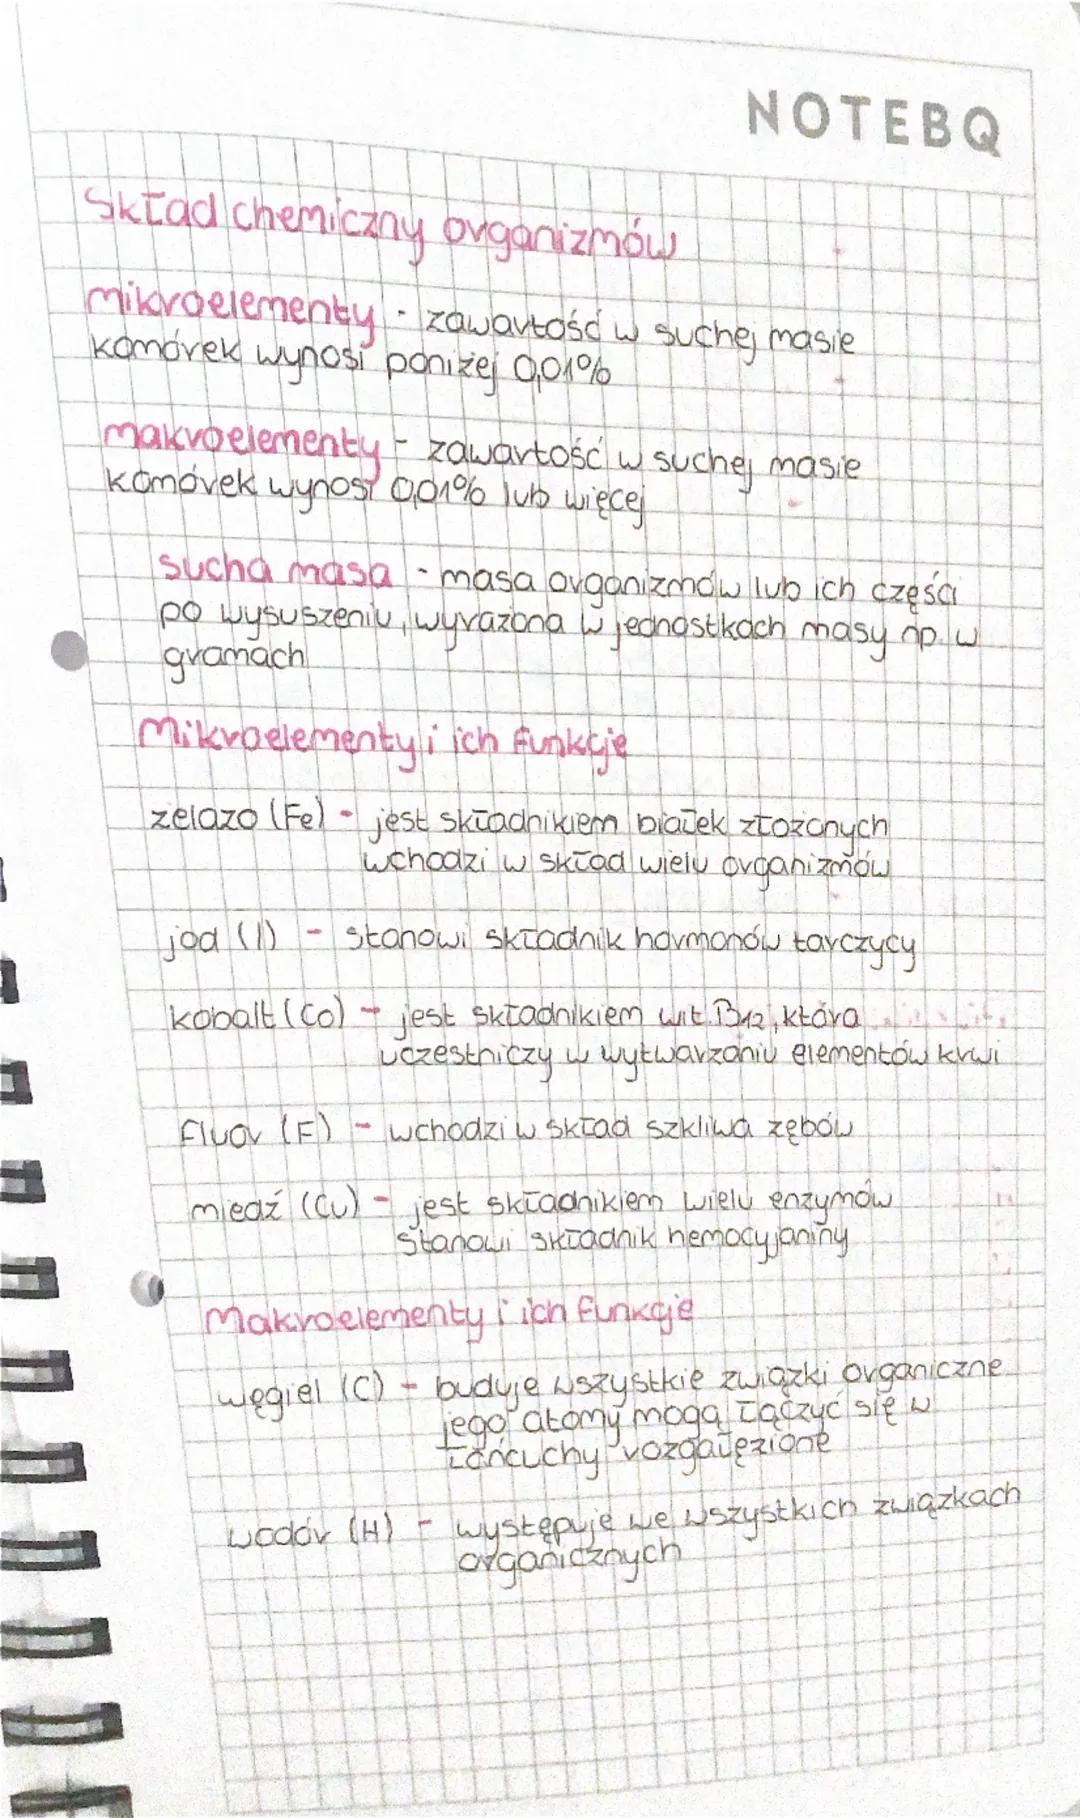 NOTEBQ
Skład chemiczny organizmów
mikroelementy - zawartość w suchej masie
komórek wynosi poniżej 0,01%
makroelementy - zawartość w suchej masie
komórek wynosi 0,01% lub więcej
sucha masa - masa organizmów lub ich części
po wysuszeniu, wyrażona w jednostkach masy np. w
gramach
Mikroelementy i ich funkcje
żelazo (Fe) - jest składnikiem białek złożonych
wchodzi w skład wielu organizmów
jod (I) - stanowi składnik hormonów tarczycy
kobalt (Co) - jest składnikiem wit. B12, która
uczestniczy w wytwarzaniu elementów krwi
fluor (F) - wchodzi w skład szkliwa zębów
miedź (Cu) - jest składnikiem wielu enzymów
stanowi składnik hemocyjaniny
Makroelementy i ich funkcje
węgiel (C) - buduje wszystkie związki organiczne
jego atomy mogą łączyć się w
łańcuchy rozgałęzione
wodór (H) - występuje we wszystkich związkach
organicznych